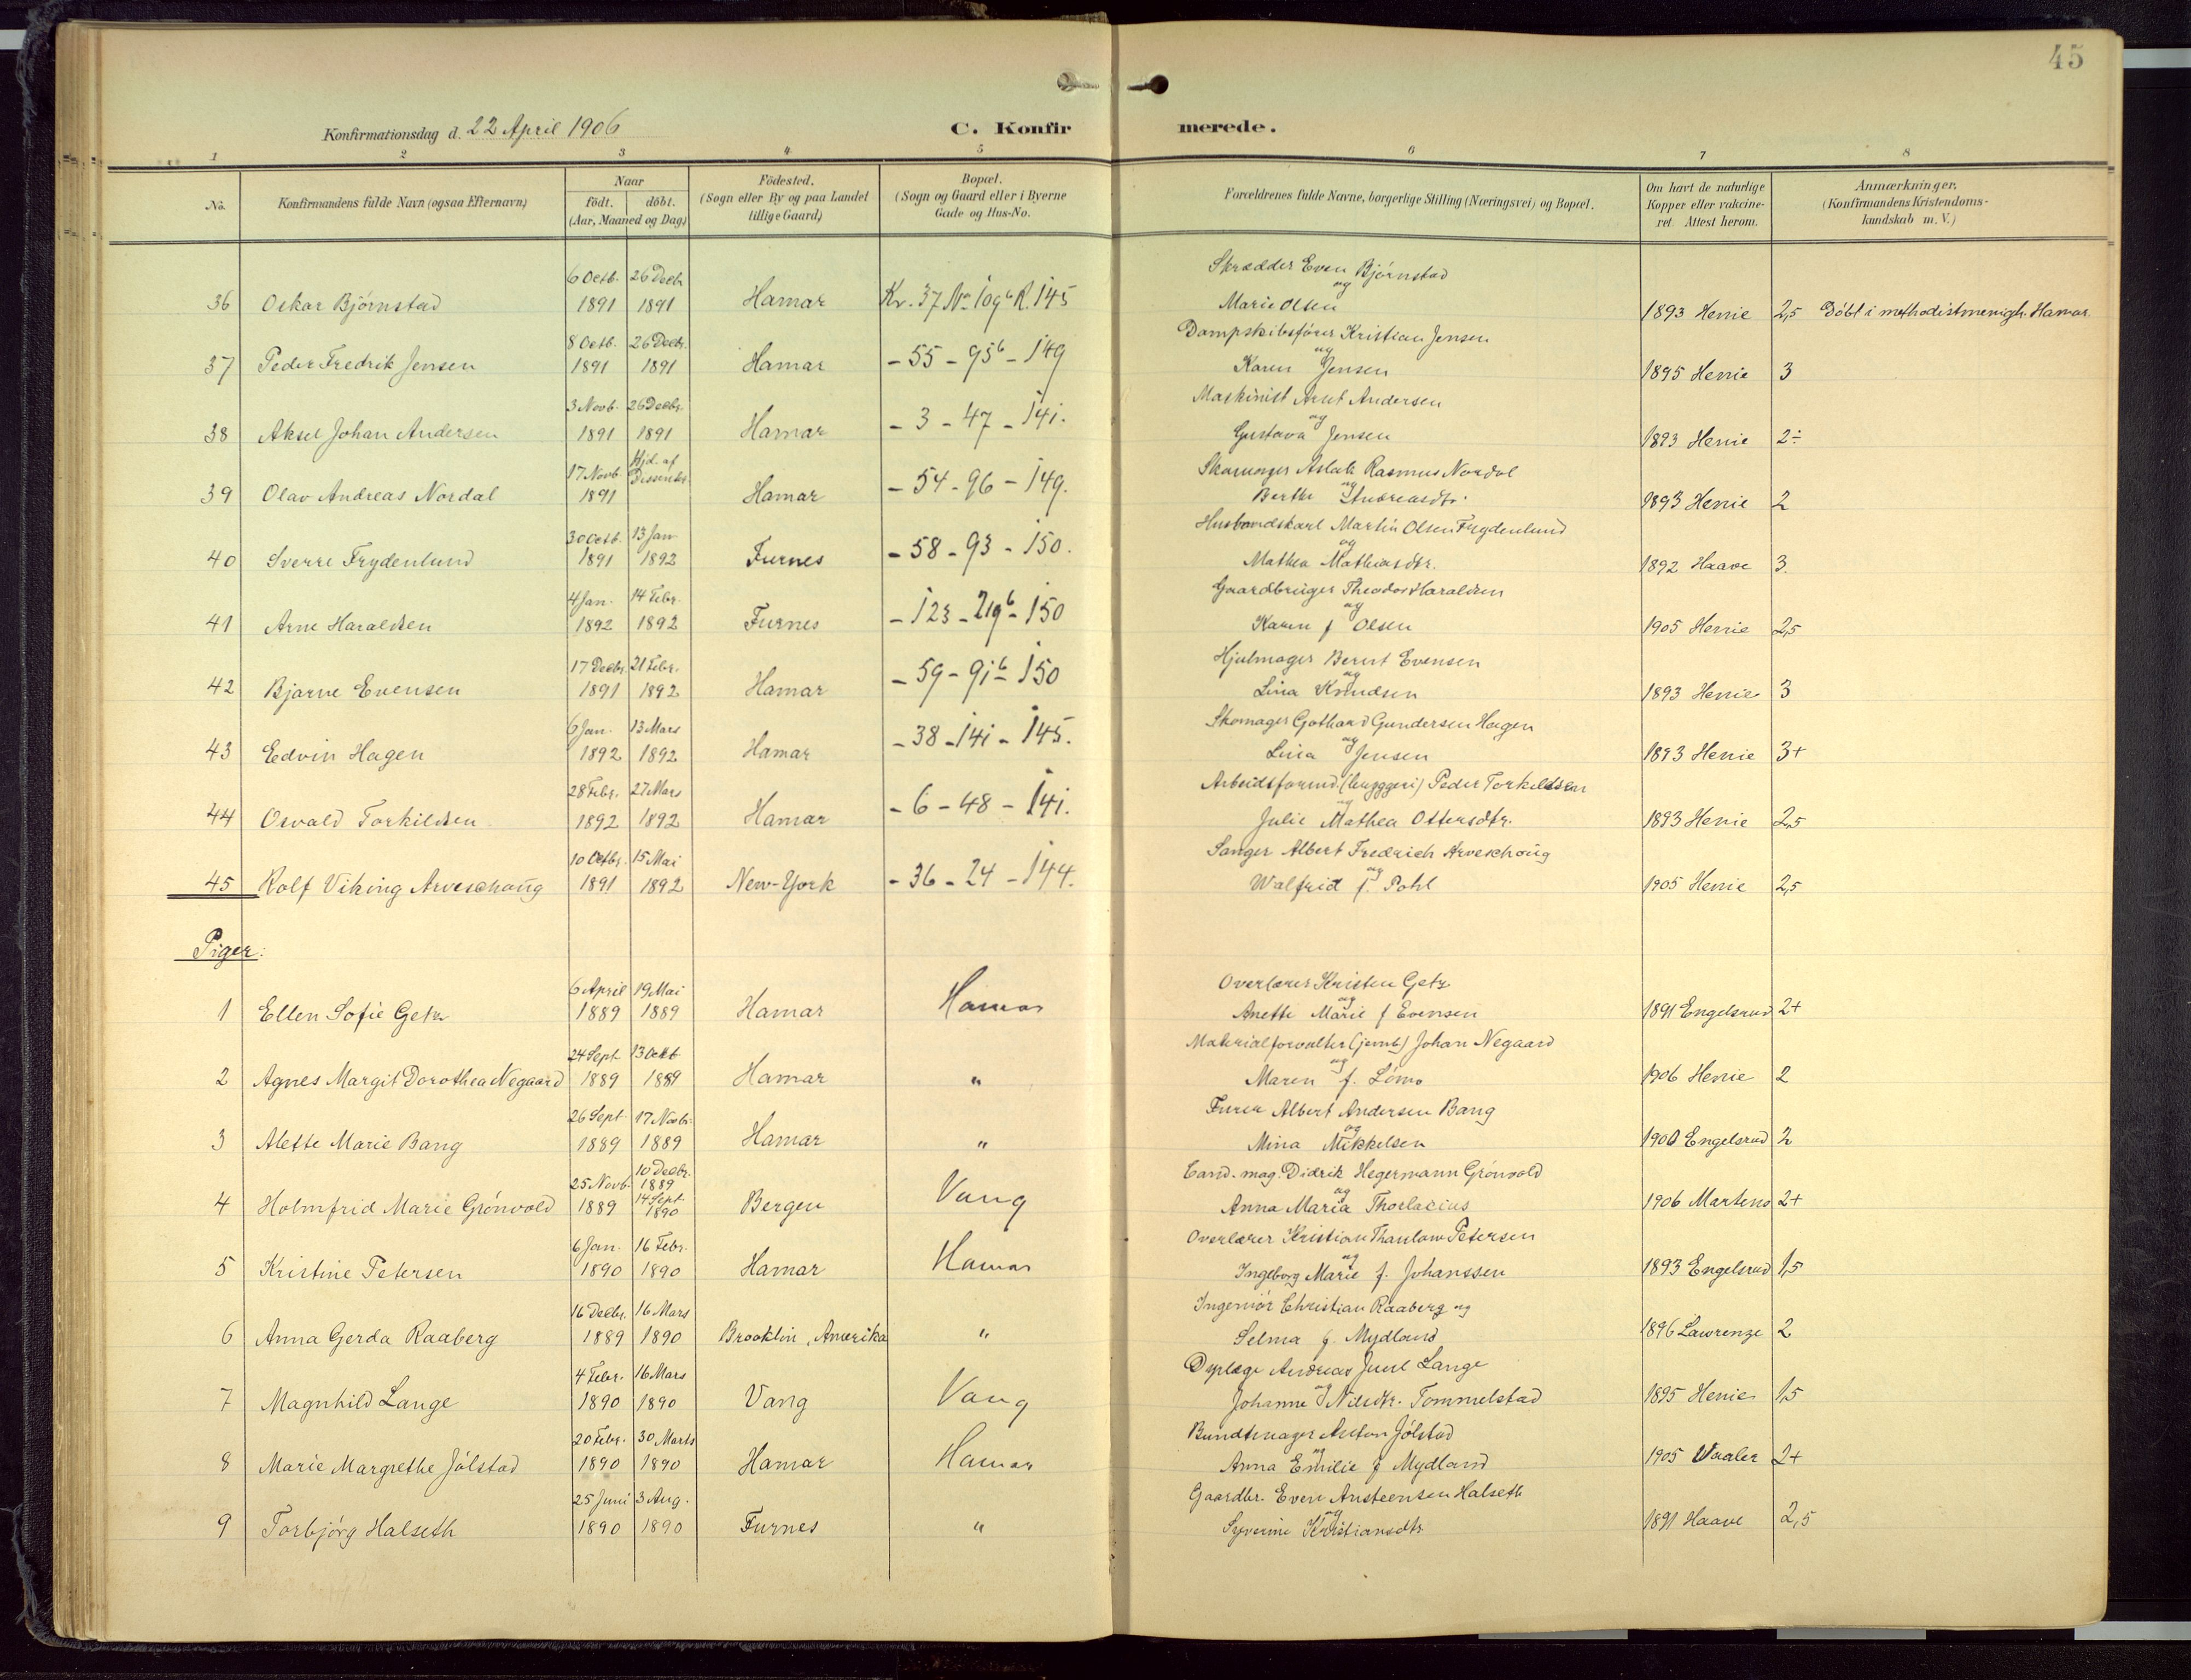 45
Konfirmationsdag d. 22 April 1906
C. Konfirmerede.
1 2 3 4 5 6 7 8
No. Konfirmandens fulde Navn (ogsaa Efternavn) Naar födt. döbt. (Aar, Maaned og Dag) Födested. (Sogn eller By og paa Landet tillige Gaard) Bopæl. (Sogn og Gaard eller i Byerne Gade og Hus-No. Forældrenes fulde Navne, borgerlige Stilling (Næringsvei) og Bopæl. Om havt de naturlige Kopper eller vakcineret. Attest herom. Anmærkninger. (Konfirmandens Kristendomskundskab m. V.)
6 Octb. 26 Decb. Skrædder Even Bjørnstad
36 Oskar Bjørnstad 1891 1891 Hamar Kr. 37 No 109b R. 145 og Marie Olsen 1893 Henie 2,5 Döbt i methodistmenigh. Hamar.
8 Octb. 26 Decbr. Dampskibsfører Kristian Jensen
37 Peder Fredrik Jensen 1891 1891 Hamar - 55 - 95b - 149 og Karen Jensen 1895 Henie 3
3 Novb. 26 Decbr. Maskinist Arnt Andersen
38 Aksel Johan Andersen 1891 1891 Hamar - 3 - 47 - 141. og Gustava Jensen 1893 Henie 2÷
17 Novb. Hjd. af Dissenter. Aslak Rasmus Nordal
39 Olav Andreas Nordal 1891 Hamar - 54 - 96 - 149. og Berthe Andreasdtr. 1893 Henie 2
30 Octb. 13 Jan Husbandskarl Martin Olsen Frydenlund
40 Sverre Frydenlund 1891 1892 Furnes - 58 - 93 - 150. og Mathea Mathiasdtr. 1892 Haave 3.
4 Jan. 14 Febr. Gaardbruger Theodor Haraldsen
41 Arne Haraldsen 1892 1892 Furnes - 123 - 219b - 150 og Karen f Olsen 1905 Henie 2,5
17 Decbr. 21 Febr. Hjulmager Bernt Evensen
42 Bjarne Evensen 1891 1892 Hamar - 59 - 91b - 150 og Lina Knudsen 1893 Henie 3
6 Jan. 13 Mars Skomager Gothard Gundersen Hagen
43 Edvin Hagen 1892 1892 Hamar - 38 - 141 - 145. og Lina Jensen 1893 Henie 3+
28 Febr. 27 Mars Arbeidsformd. (bryggeri) Peder Torkildsen
44 Osvald Torkildsen 1892 1892 Hamar - 6 - 48 - 141. og Julie Mathea Ottersdtr. 1893 Henie 2,5
10 Octbr. 15 Mai Sanger Albert Fredrich Arveschoug
45 Rolf Viking Arveschoug 1891 1892 New-York - 36 - 24 - 144. og Walfrid f. Pohl 1905 Henie 2,5
Piger:
6 April 19 Mai Overlærer Kristen Getz
1 Ellen Sofie Getz 1889 1889 Hamar Hamar og Anette Marie f Evensen 1891 Engelsrud 2+
24 Sept. 13 Octb Materialforvalter (jernb) Johan Negaard
2 Agnes Margit Dorothea Negaard 1889 1889 Hamar " og Maren f. Lömo 1906 Henie 2
26 Sept. 17 Novbr. Furer Albert Andersen Bang
3 Alette Marie Bang 1889 1889 Hamar " og Mina Mikkelsen 1900 Engelsrud 2
25 Novb. 10 Decbr. 1889 Cand. mag. Didrik Hegermann Grönvold
4 Holmfrid Marie Grönvold 1889 14 Sept. 1890 Bergen Vang og Anna Maria Thorlacius 1906 Martens 2+
6 Jan. 16 Febr. Overlærer Kristian Thaulow Petersen
5 Kristine Petersen 1890 1890 Hamar Hamar og Ingeborg Marie f. Johanssen 1893 Engelsrud 1,5
16 Decbr. 16 Mars Ingeniör Christian Raaberg og
6 Anna Gerda Raaberg 1889 1890 Brooklin, Amerika " Selma f. Mydland 1896 Lawrenze 2
4 Febr. 16 Mars Dyrlæge Andreas Juul Lange
7 Magnhild Lange 1890 1890 Vang Vang og Johanne Nilsdtr. Tommelstad 1895 Henie 1,5
20 Febr. 30 Marts Bundtmager Anton Jölstad
8 Marie Margrethe Jölstad 1890 1890 Hamar Hamar og Anna Emilie f Mydland 1905 Vaaler 2+
25 Juni 3 Aug. Gaardbr. Even Austeensen Halseth
9 Torbjörg Halseth 1890 1890 Furnes " og Syverine Kristiansdtr 1891 Haave 2,5